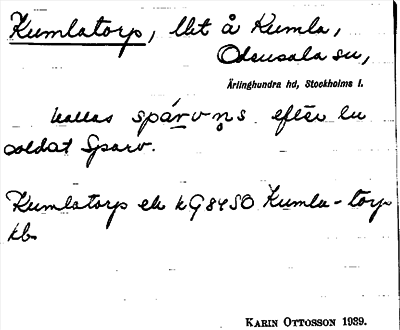 Kumlatorp, lht å Kumla,
Odensala sn,
Ärlinghundra hd, Stockholms l.
kallas spárvns efter en
soldat Sparv.
Kumlatorp ek kG84SO Kumla-torp
kb
KARIN OTTOSSON 1939.